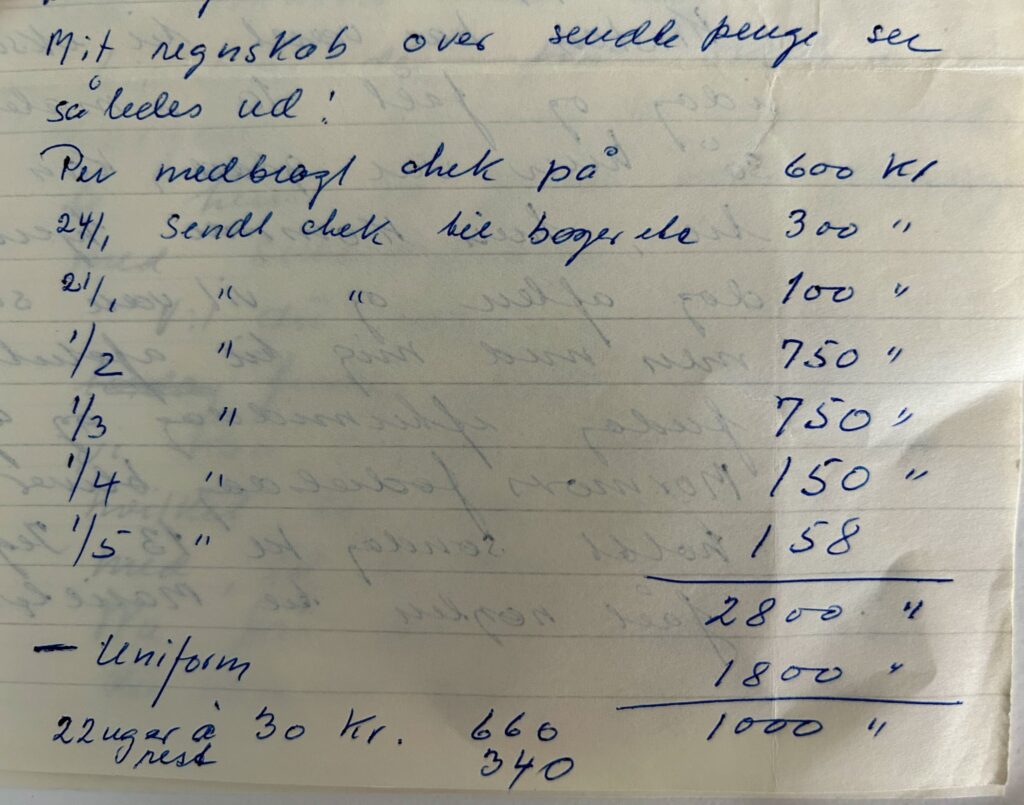 Mit regnskab over sendte penge ser
således ud!
Per medbragt chek på 600 Kr
24/1 Sendt chek til bøger etc 300 "
21/1 " " 100 "
1/2 " 750 "
1/3 " 750 "
1/4 " 150 "
1/5 " 158
2800 "
— Uniform 1800 "
22 uger à 30 Kr. 660 1000 "
rest 340